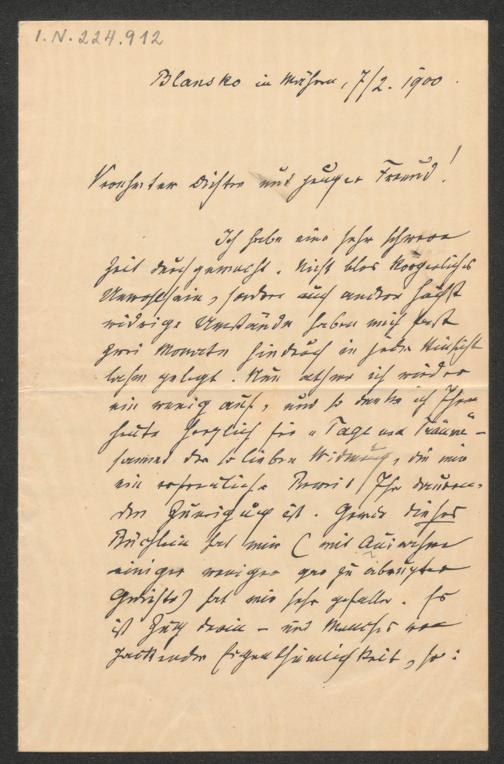 I.N. 224.912
Blansko in Mähren, 7/2. 1900.
Verehrter Dichter und junger Freund!
Ich habe eine sehr schwere
Zeit durchgemacht. Nicht blos körperliches
Unwohlsein, sondern auch andere höchst
widrige Umstände haben mich fast
zwei Monate hindurch in jeder Hinsicht
lahm gelegt. Nun athme ich wieder
ein wenig auf, und so danke ich Ihnen
heute herzlich für "Tage und Träume" –
sammt der so lieben Widmung, die mir
ein erfreulicher Beweis Ihrer dauern-
den Zuneigung ist. Gerade dieses
Büchlein hat mir (mit Ausnahme
einiger weniger gar zu
Gedichte) hat mir sehr gefallen. Es
ist Zug darin – und Manches von
packender Eigenthümlichkeit, so: